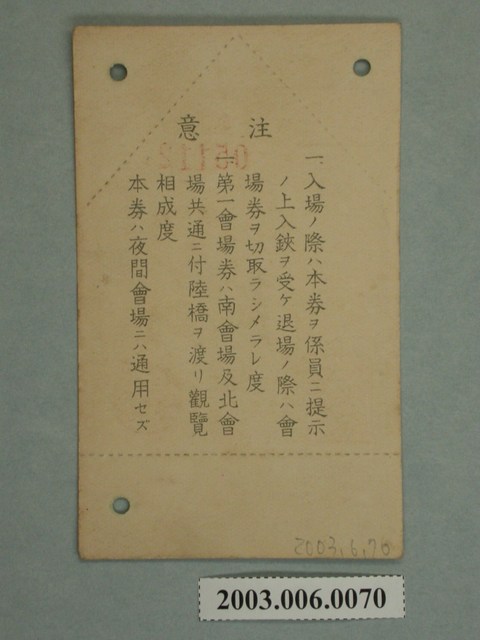 注意
一、入場ノ際ハ本券ヲ係員ニ提示
ノ上入鋏ヲ受ケ退場ノ際ハ會
場券ヲ切取ラシメラレ度
一、第一會場券ハ南會場及北會
場共通ニ付陸橋ヲ渡リ觀覽
相成度
本券ハ夜間會場ニハ通用セズ
2003.6.70
2003.006.0070